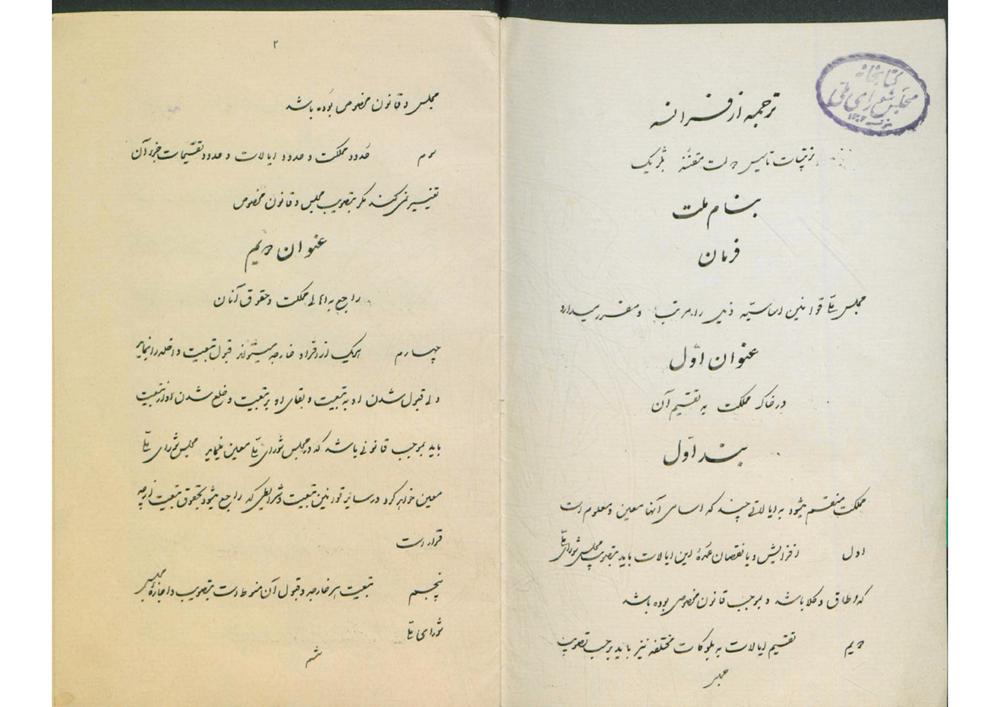 کتابخانه
مجلس شورای ملی
ترجمه از فرانسه
ترتیبات تاسیس دولت متفقهٔ بلژیک
بنام ملت
فرمان
مجلس ملی قوانین اساسیه ذیل را مرتب و مقرر میدارد
عنوان اوّل
در خاک مملکت به تقسیم آن
بند اوّل
مملکت منقسم میشود به ایالاتی چند که اسامی آنها معین و معلوم است
اول افزایش و یا نقصان عدهٔ این ایالات باید بتصویب مجلس شورای ملی
که وطاق وکلا باشد و بموجب قانون مخصوص بوده باشد
دویم تقسیم ایالات به بلوکات مختلفه نیز باید برحسب تصویب
مجلس
۲
مجلس و قانون مخصوص بوده باشد
سوم حدود مملکت و حدود ایالات و حدود تقسیمات جزء آن
تغییر نمی‌کند مگر بتصویب مجلس و قانون مخصوص
عنوان دویم
راجع به اهالی مملکت و حقوق آنان
چهارم هریک از افراد خارجه میتواند قبول تبعیت داخله را نماید
ولی قبول شدن او به تبعیت و بقای او بر تبعیت و خلع شدن او از تبعیت
باید بموجب قانونی باشد که در مجلس شورای ملی معین نماید مجلس شورای ملی
معین خواهد کرد در سایر قوانین تبعیت و شرایطی که راجع میشود بحقوق تبعیت از چه
قرار است
پنجم تبعیت هر خارجه و قبول آن منوط است بتصویب و اجازهٔ مجلس
شورای ملی
ششم